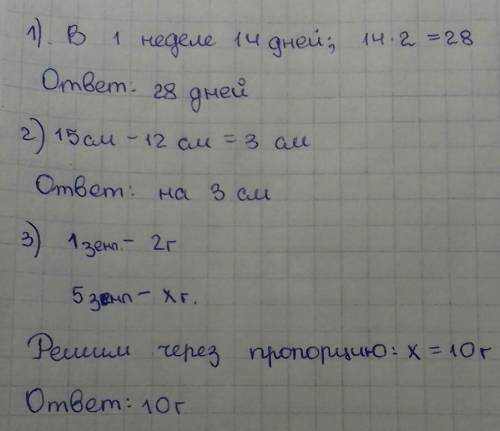 1). В 1 неделе 14 дней; 14·2 =28
Ответ: 28 дней
2) 15см – 12 см = 3 см
Ответ: на 3 см
3) 1зенп – 2г
5зенп – хг.
Решим через пропорцию: х = 10г
Ответ: 10г